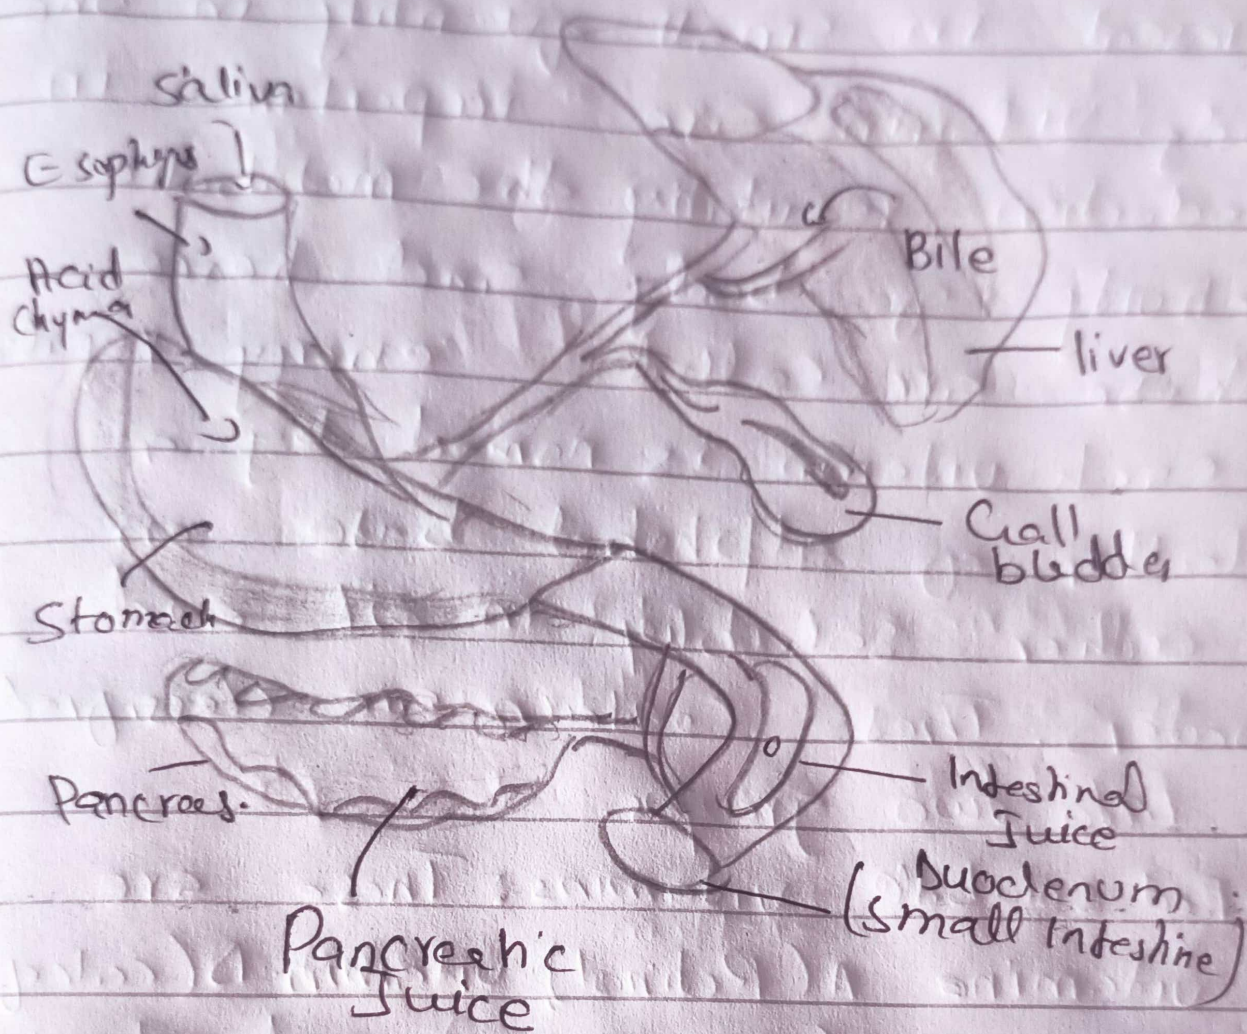 Saliva
Esophgs
Acid
Chyma
Bile
liver
Gall
bladder
Stomach
Pancraes.
Intestinal
Juice
Duodenum
(small Intestine)
Pancreatic
Juice